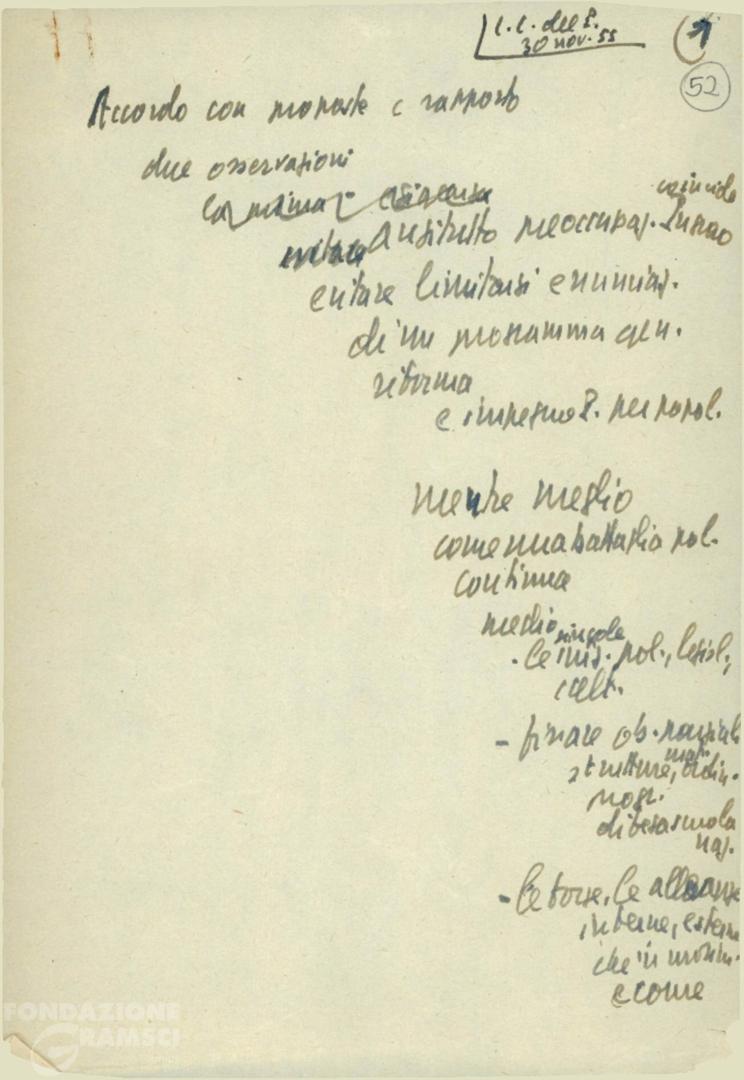 C.C. del P.
30 nov. 55
1
52
Accordo con proposte e rapporto
due osservazioni
La prima -
coincide
Anzitutto preoccupaz.
evitare limitarsi enunciaz.
di un programma gen.
riforma
e impegno P. per popol.
mentre meglio
come una battaglia pol.
continua
meglio
singole
- le iniz. pol., legisl.,
cult.
- fissare ob. parziali
mat.
strutture, ordin.
progr.
difesa scuola
naz.
- le forze, le alleanze
interne, esterne
che in
e come
FONDAZIONE
GRAMSCI